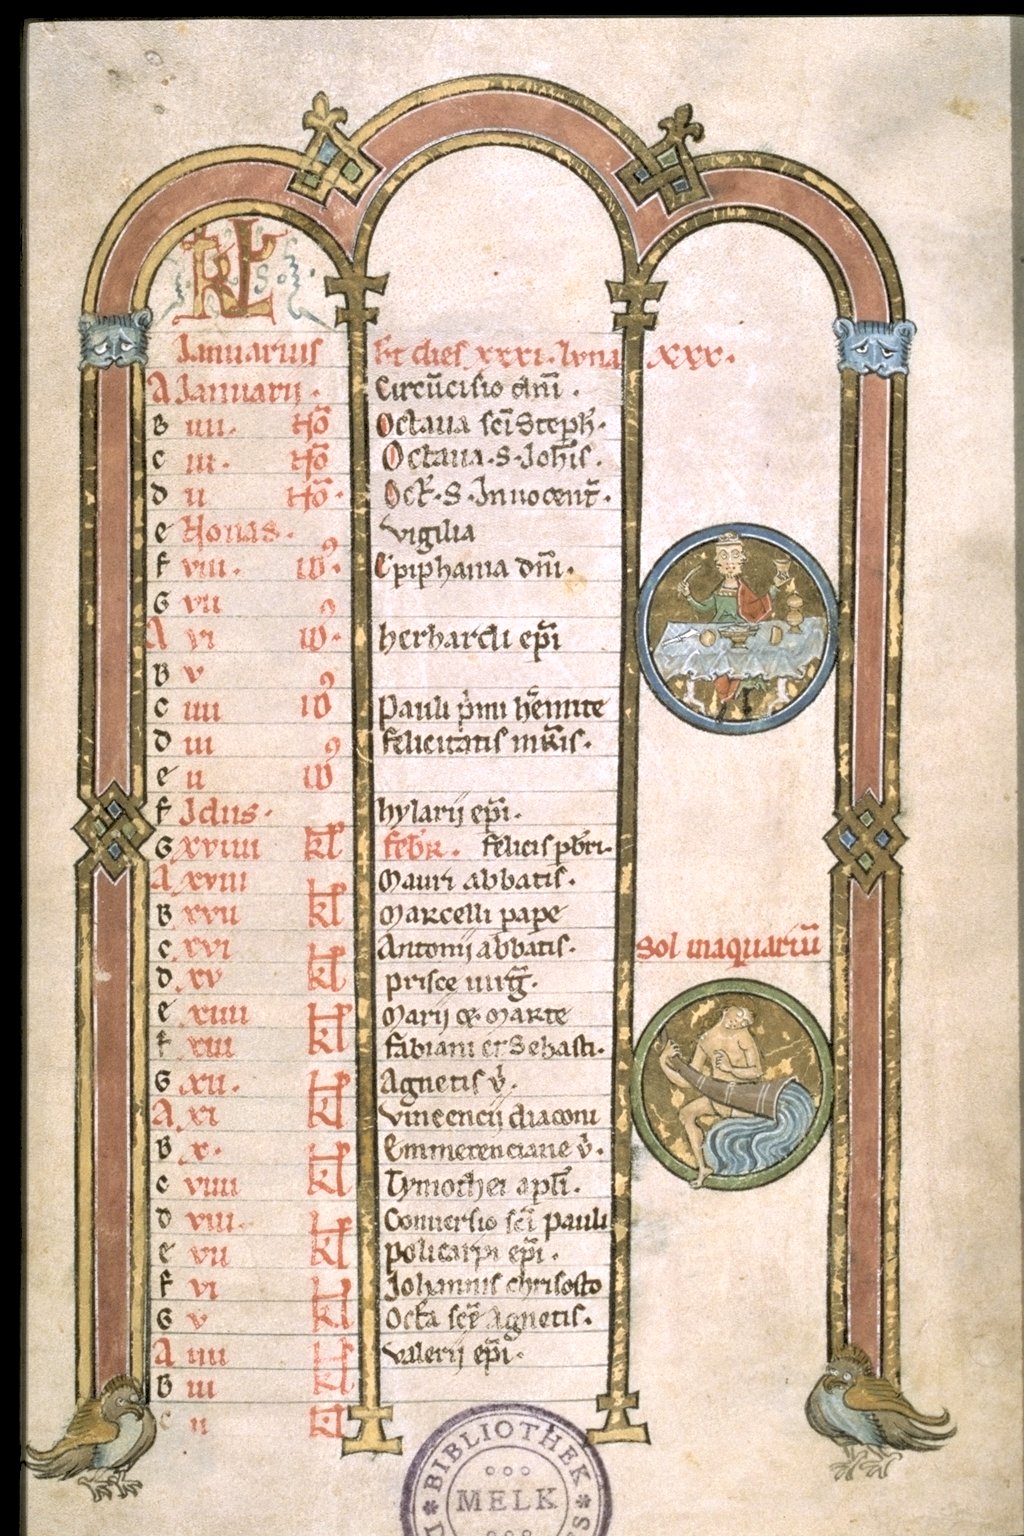 KL
Januarius Et dies xxxi. luna xxx.
A Januarii. Circūcisio dn̄i.
B iiii. No̅ Octaua sc̄i Steph̄.
c iii. No̅ Octaua. S. Joh̄is.
d ii No̅. Oct̄. S. Innocent̄.
e Nonas. Vigilia
f viii. id⁹. Epiphania dn̄i.
G vii
A vi id⁹. herhardi ep̄i
B v
c iiii id⁹ Pauli p̄mi h̄emite
d iii felicitatis m̄ris.
e ii id⁹
f Idus. hylarij ep̄i.
G xviiii kł febr̄. felicis pb̄ri.
A xviii Mauri abbatis.
B xvii kł Marcelli pape
c xvi Antonij abbatis. Sol in aquariū
d xv kł prisce uirḡ.
e xiiii Marij & Marte
f xiii kł fabiani et Sebasti.
G xii. Agnetis v̄.
A xi kł Vincencij diaconi
B x. Emmerenciane v̄.
c viiii kł Tymothei apl̄i.
d viii. Conuersio sc̄i pauli
e vii kł policarpi ep̄i.
f vi Johannis chrisosto
G v kł Octa sc̄e Agnetis.
A iiii Valerij ep̄i.
B iii kł
c ii kł
BIBLIOTHEK
MELK